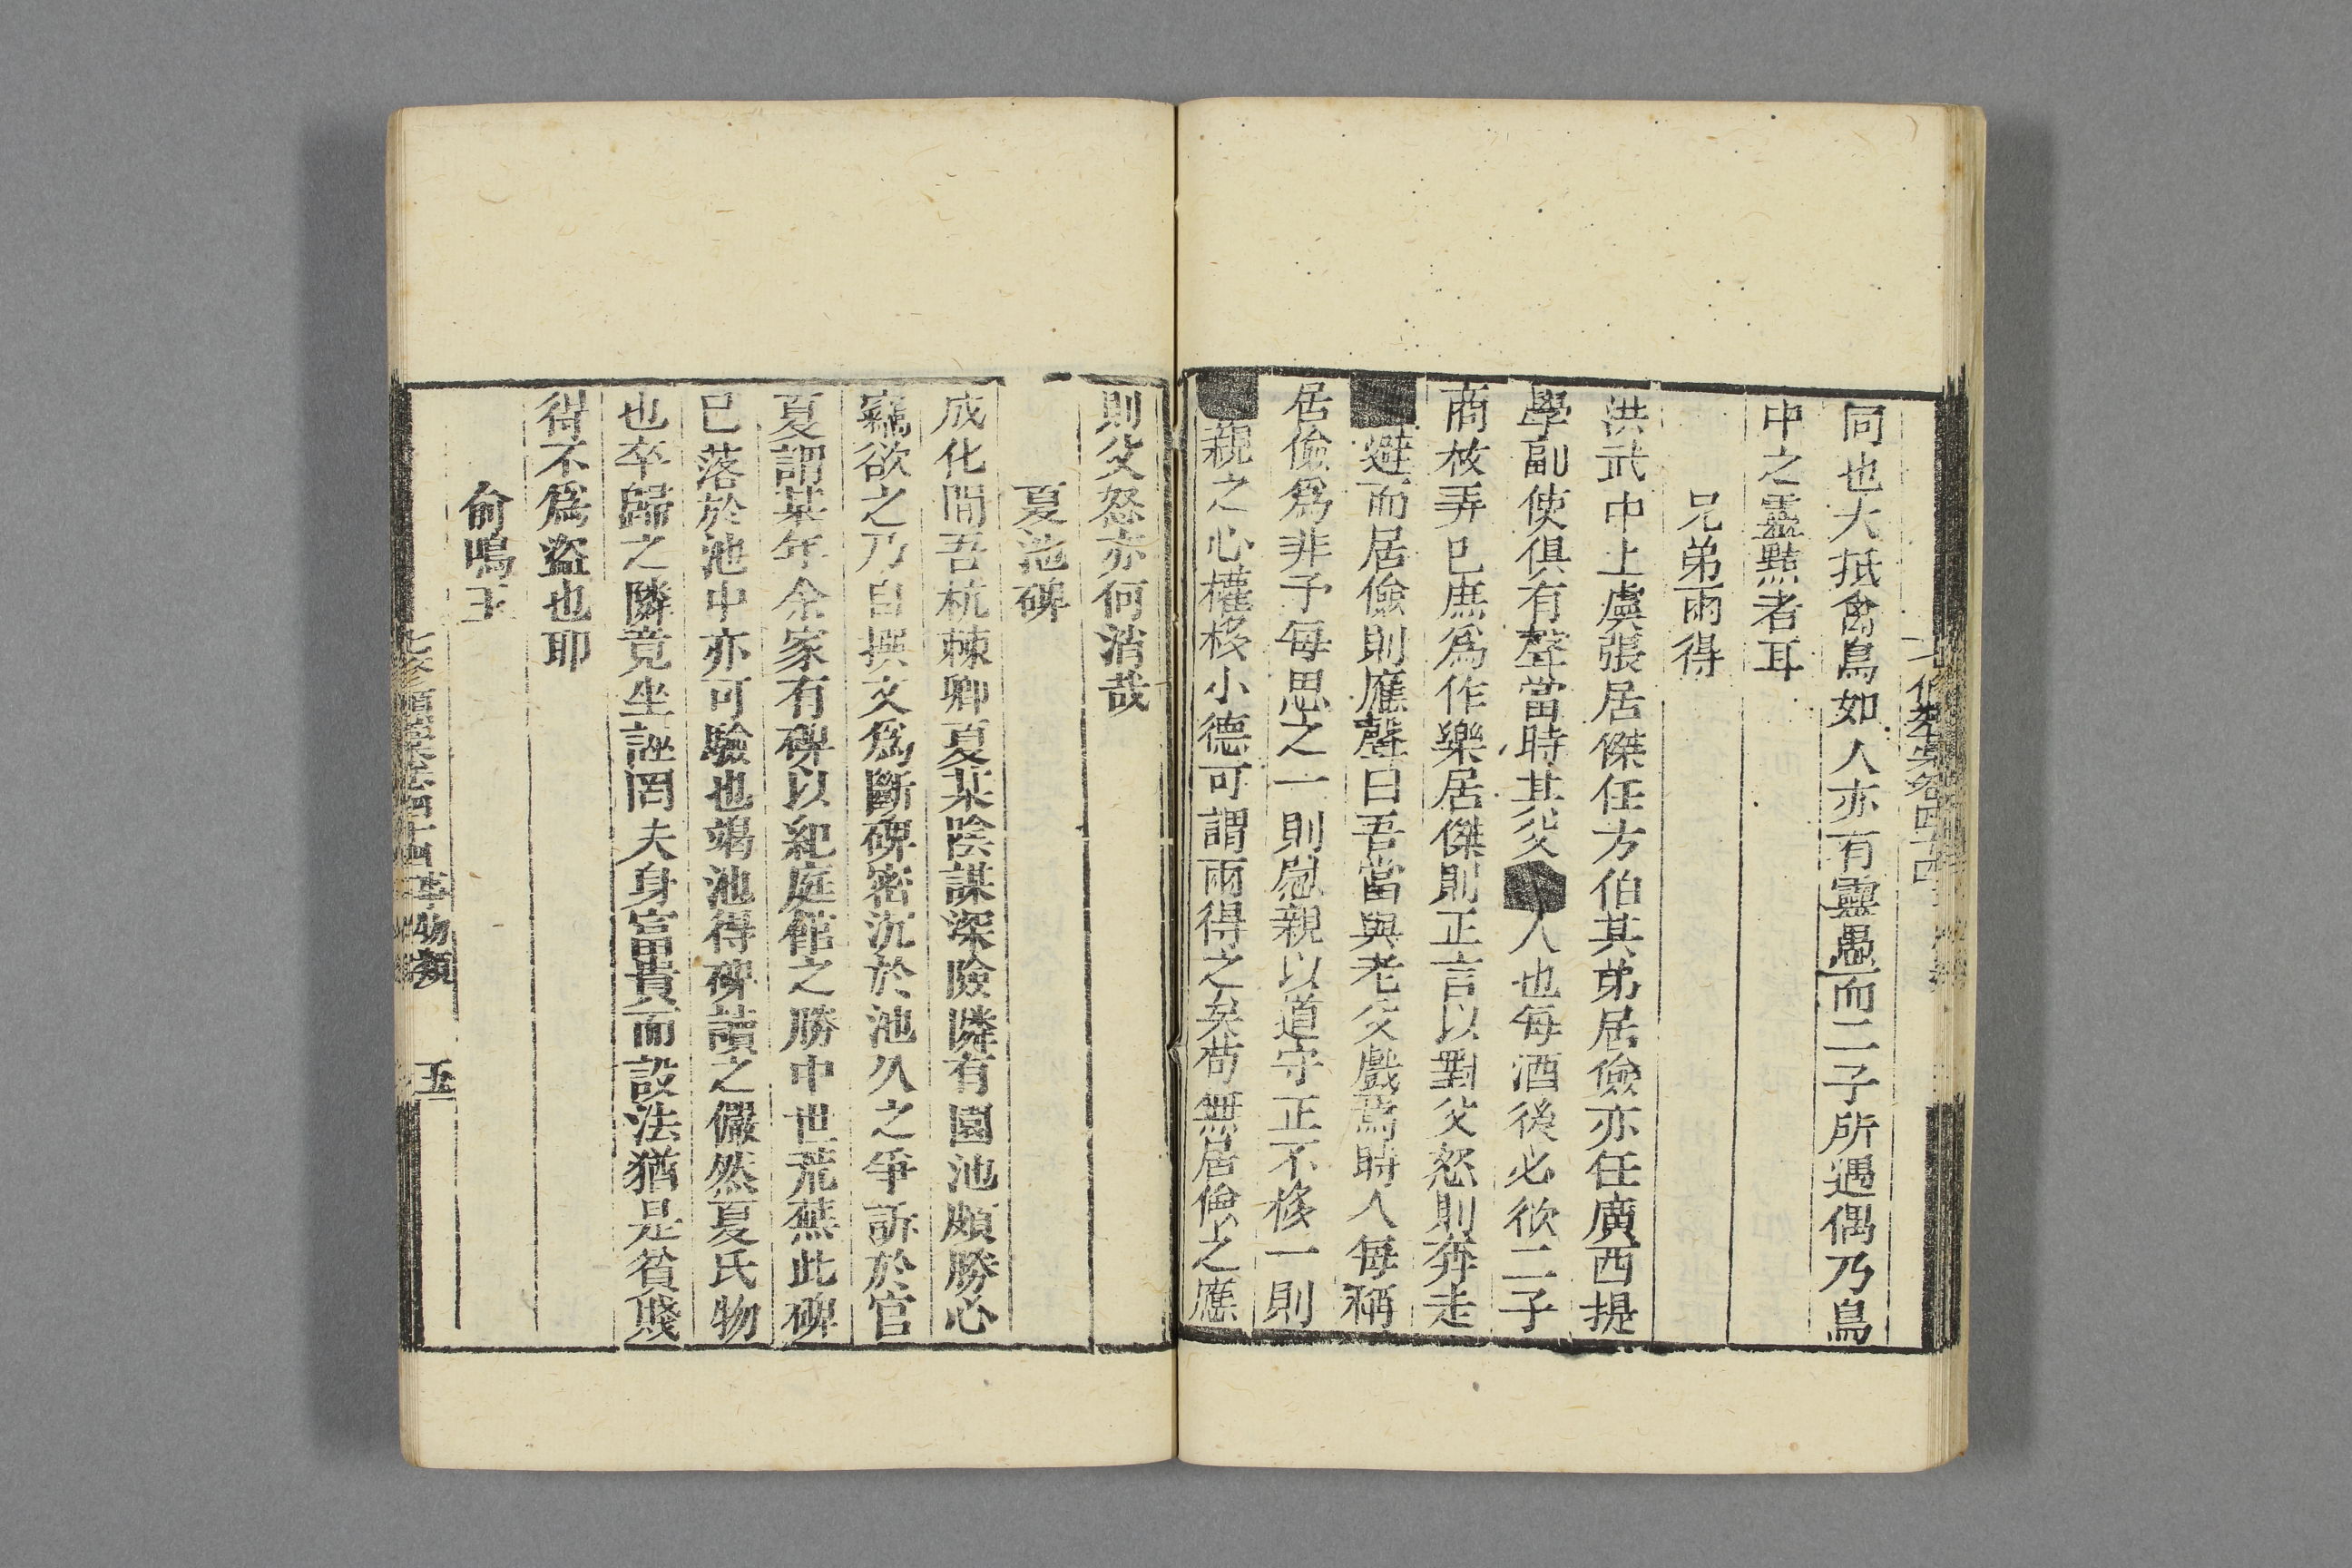 同也大抵禽鳥如人亦有靈愚而二子所遇偶乃鳥
中之靈㸃者耳
兄弟兩得
洪武中上虞張居傑任方伯其弟居儉亦任廣西提
學副使俱有聲當時其父人也每酒後必欲二子
商枚弄巳庶爲作樂居傑則正言以對父怒則奔走
避而居儉則應聲曰吾當與老父戲焉時人每稱
居儉爲非予每思之一則慰親以道守正不移一則
親之心權移小德可謂兩得之矣苟無居儉之應
則父怒亦何消哉
夏池碑
成化間吾杭棘卿夏某陰謀深險隣有園池頗勝心
竊欲之乃自撰文爲斷碑密沉於池久之爭訴於官
夏謂某年余家有碑以紀庭館之勝中世荒蕪此碑
已落於池中亦可驗也竭池得碑讀之儼然夏氏物
也卒歸之隣竟坐誣罔夫身富貴而設法猶是貧賤
得不爲盜也耶
俞鳴玉
七修類藁卷四十四 事物類 五